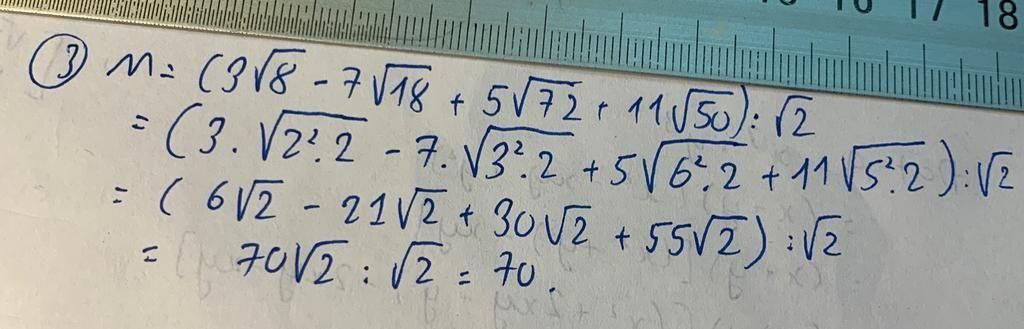 15 16 17 18
③ M = (3√8 - 7√18 + 5√72 + 11√50) : √2
= (3 . √2².2 - 7. √3².2 + 5√6².2 + 11√5².2) : √2
= ( 6√2 - 21√2 + 30√2 + 55√2 ) : √2
= 70√2 : √2 = 70.